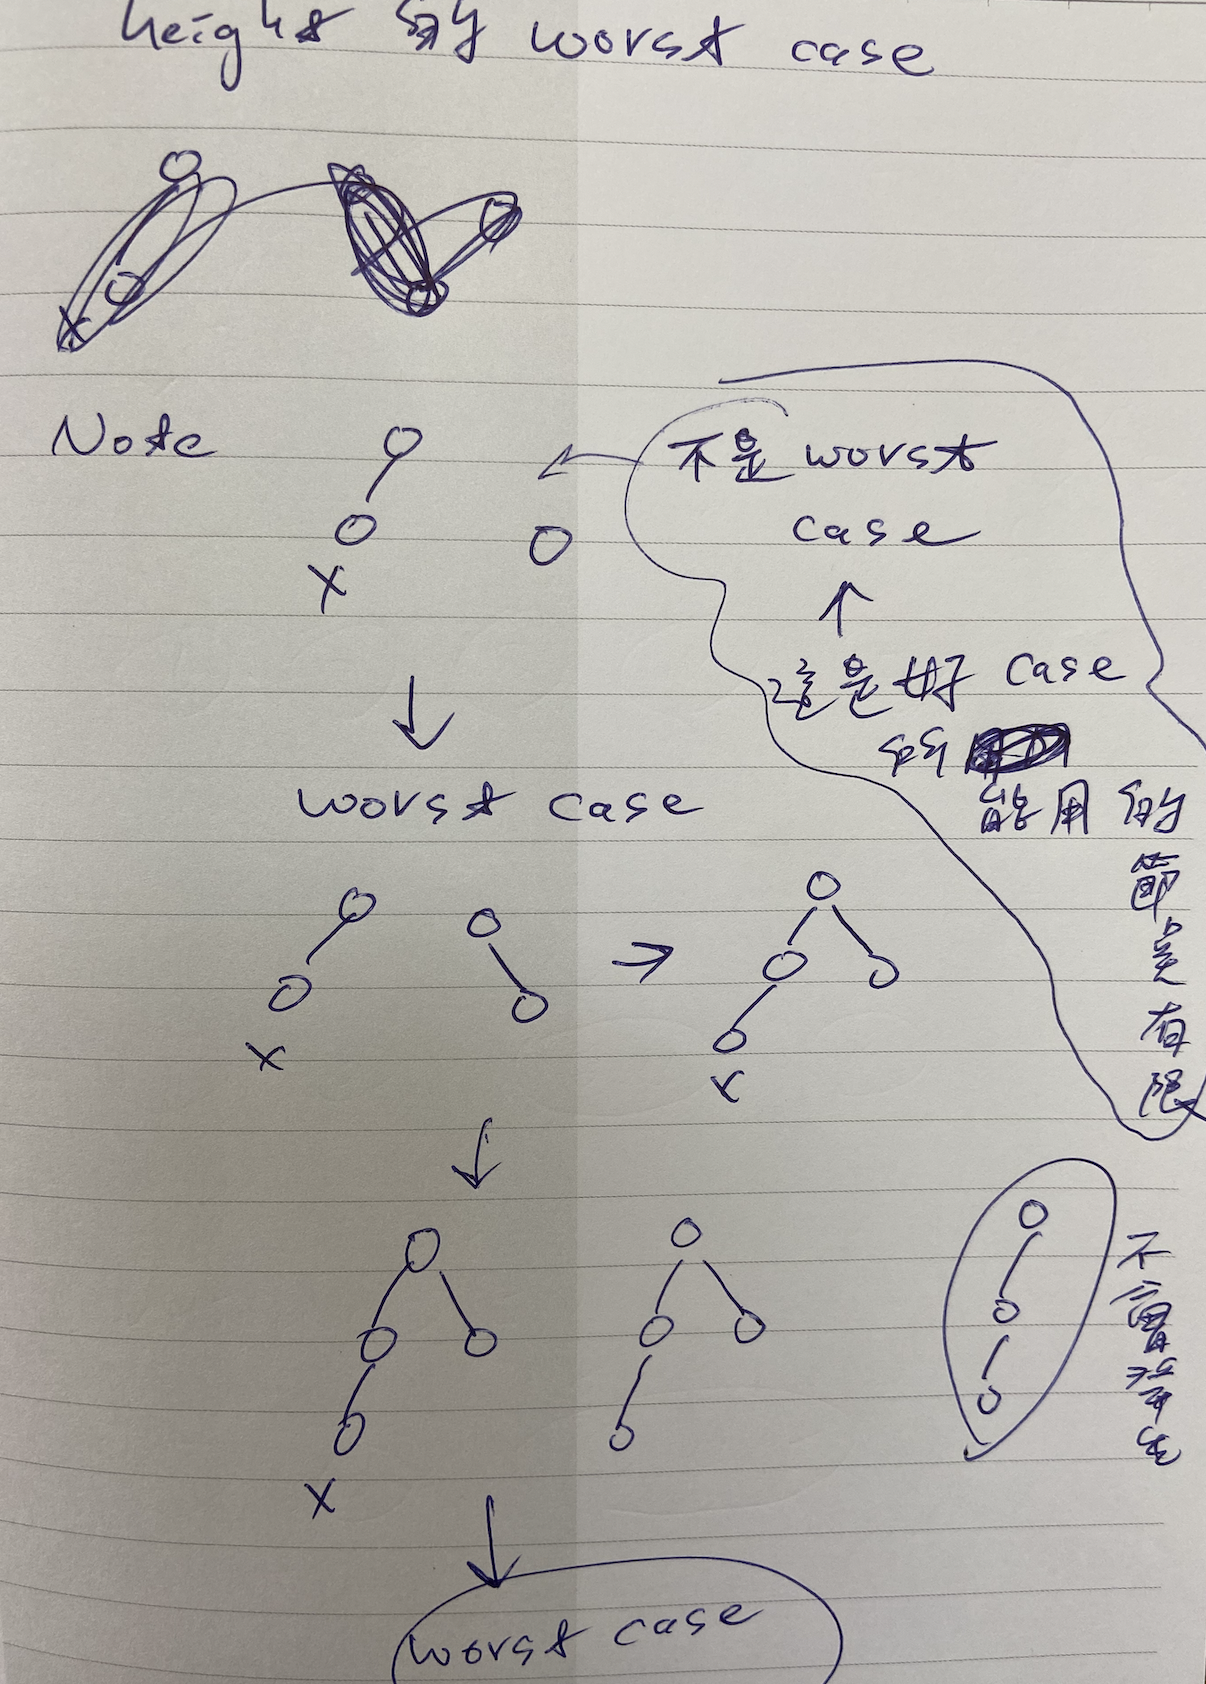 height 的 worst case
Note
不是 worst
case
X
這是好 case
能用的
節點有限
worst case
x
x
不會發生
X
worst case